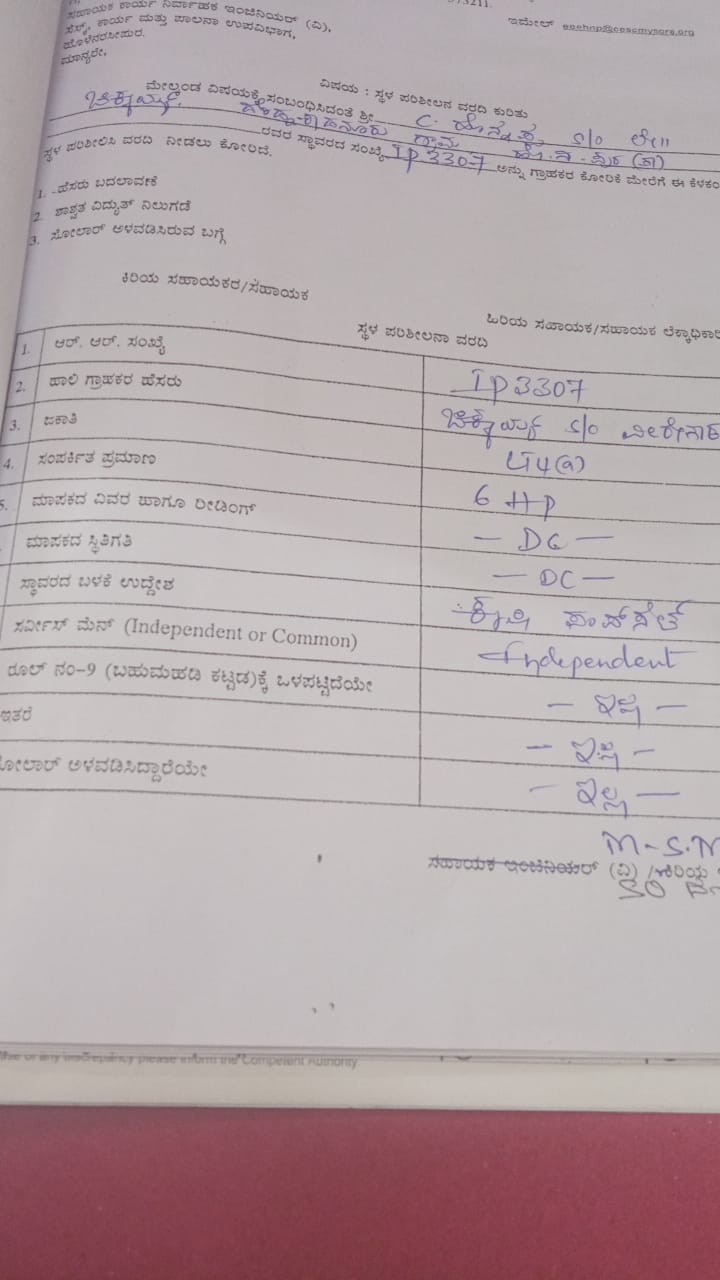 73211.
ಇಮೇಲ್ eeehnp@cescmysore.org
ಸಹಾಯಕ ಕಾರ್ಯ ನಿರ್ವಾಹಕ ಇಂಜಿನಿಯರ್ (ವಿ),
ಕಾರ್ಯ ಮತ್ತು ಪಾಲನಾ ಉಪವಿಭಾಗ,
ಹೊಳೆನರಸೀಪುರ.
ಮಾನ್ಯರೇ,
ವಿಷಯ : ಸ್ಥಳ ಪರಿಶೀಲನ ವರದಿ ಕುರಿತು
ಮೇಲ್ಕಂಡ ವಿಷಯಕ್ಕೆ ಸಂಬಂಧಿಸಿದಂತೆ ಶ್ರೀ C. ಹೊನ್ನಪ್ಪ S/O ಲೇ||
ಗ್ರಾಮ ಹೊ.ನ.ಪುರ (ತಾ)
ರವರ ಸ್ಥಾವರದ ಸಂಖ್ಯೆ IP3307 ಅನ್ನು ಗ್ರಾಹಕರ ಕೋರಿಕೆ ಮೇರೆಗೆ ಈ ಕೆಳಕಂ
ಸ್ಥಳ ಪರಿಶೀಲಿಸಿ ವರದಿ ನೀಡಲು ಕೋರಿದೆ.
1. ಹೆಸರು ಬದಲಾವಣೆ
2. ಶಾಶ್ವತ ವಿದ್ಯುತ್ ನಿಲುಗಡೆ
3. ಸೋಲಾರ್ ಅಳವಡಿಸಿರುವ ಬಗ್ಗೆ
ಕಿರಿಯ ಸಹಾಯಕರ/ಸಹಾಯಕ
ಹಿರಿಯ ಸಹಾಯಕ/ಸಹಾಯಕ ಲೆಕ್ಕಾಧಿಕಾರಿ
ಸ್ಥಳ ಪರಿಶೀಲನಾ ವರದಿ
1. ಆರ್. ಆರ್. ಸಂಖ್ಯೆ IP3307
2. ಹಾಲಿ ಗ್ರಾಹಕರ ಹೆಸರು S/O
3. ಜಕಾತಿ LT4(a)
4. ಸಂಪರ್ಕಿತ ಪ್ರಮಾಣ 6 HP
5. ಮಾಪಕದ ವಿವರ ಹಾಗೂ ರೀಡಿಂಗ್ — DC —
ಮಾಪಕದ ಸ್ಥಿತಿಗತಿ — DC —
ಸ್ಥಾವರದ ಬಳಕೆ ಉದ್ದೇಶ ಕೃಷಿ ಪಂಪ್‌ಸೆಟ್
ಸರ್ವೀಸ್ ಮೆನ್ (Independent or Common) Independent
ರೂಲ್ ನಂ-9 (ಬಹುಮಹಡಿ ಕಟ್ಟಡ)ಕ್ಕೆ ಒಳಪಟ್ಟಿದೆಯೇ — ಇಲ್ಲ —
ಇತರೆ — ಇಲ್ಲ —
ೋಲಾರ್ ಅಳವಡಿಸಿದ್ದಾರೆಯೇ — ಇಲ್ಲ —
M-S.N
ಸಹಾಯಕ ಇಂಜಿನಿಯರ್ (ವಿ) /ಕಿರಿಯ
SO
or any discrepancy please inform the Competent Authority